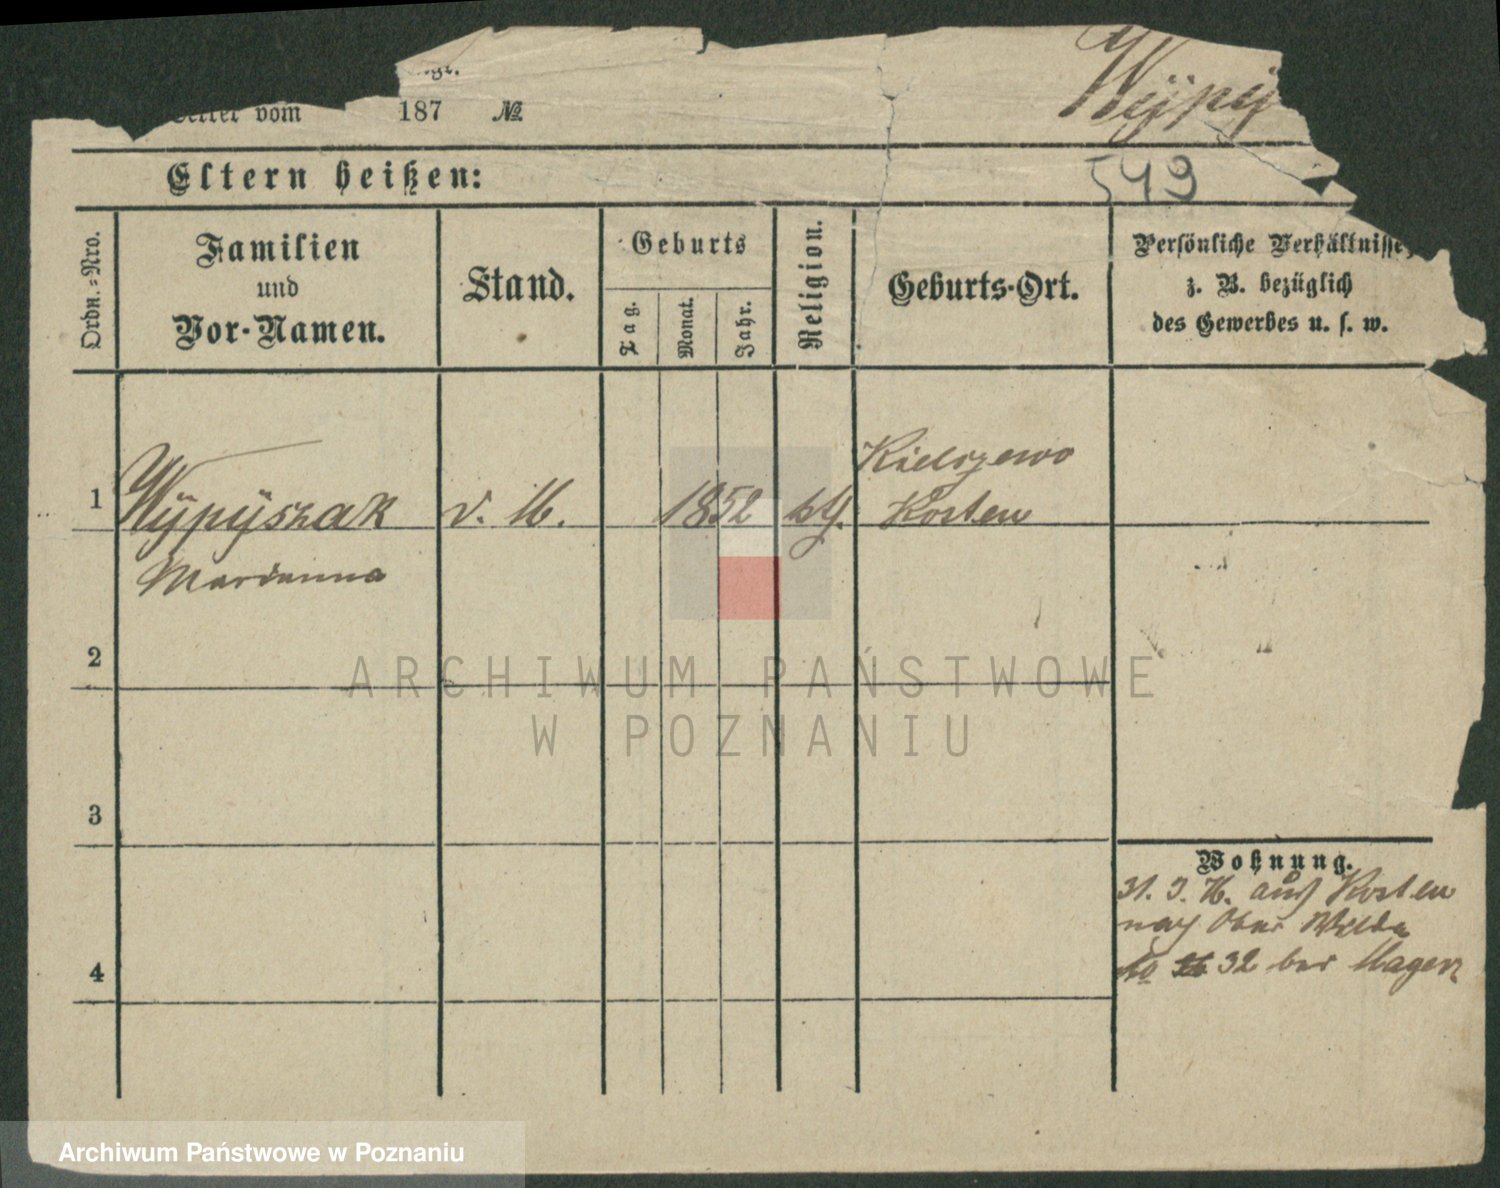 Wÿpÿ
vom 187 №
Eltern heißen:
549
Ordn.=Nro.
Familien
und
Vor-Namen.
Stand.
Geburts
Tag.
Monat.
Jahr.
Religion.
Geburts-Ort.
Persönliche Verhältnisse,
z. B. bezüglich
des Gewerbes u. s. w.
1 Wÿpÿszak
Marianna
1852
Kielczewo
Kosten
2
3
4
Wohnung.
aus Kosten
nach Ober Wilda
No 32 bei
ARCHIWUM PAŃSTWOWE
W POZNANIU
Archiwum Państwowe w Poznaniu